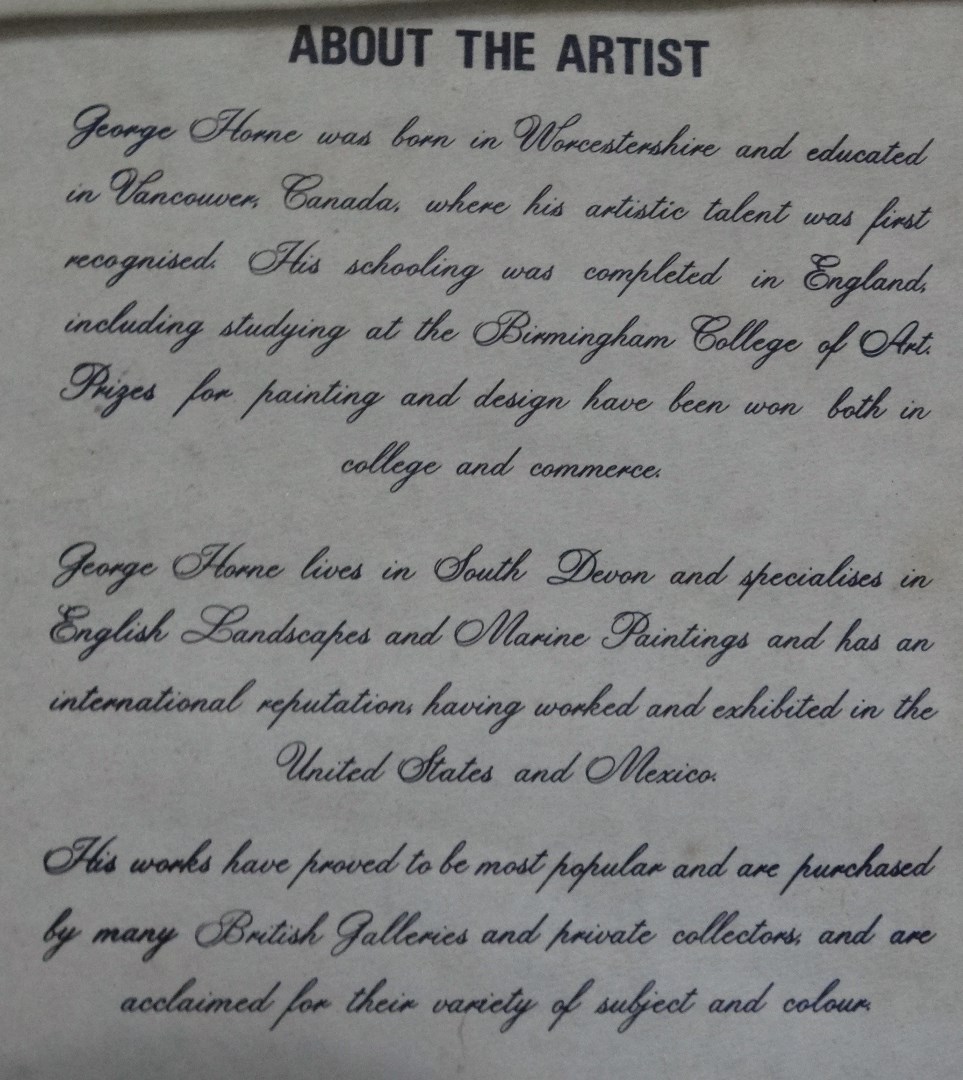 ABOUT THE ARTIST
George Horne was born in Worcestershire and educated
in Vancouver, Canada, where his artistic talent was first
recognised. His schooling was completed in England,
including studying at the Birmingham College of Art.
Prizes for painting and design have been won both in
college and commerce.
George Horne lives in South Devon and specialises in
English Landscapes and Marine Paintings and has an
international reputation, having worked and exhibited in the
United States and Mexico.
His works have proved to be most popular and are purchased
by many British Galleries and private collectors, and are
acclaimed for their variety of subject and colour.